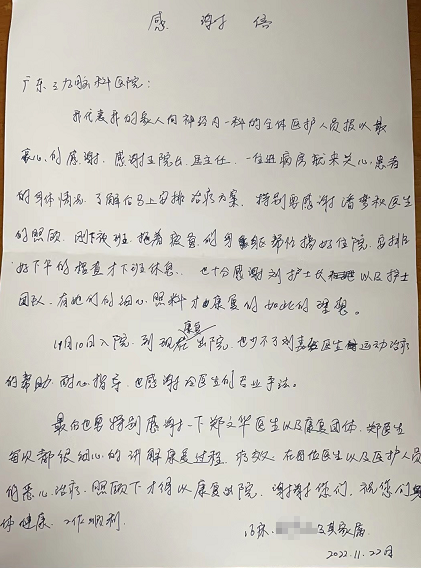 感谢信
广东三九脑科医院：
我代表我的家人向神经内一科的全体医护人员报以最
衷心的感谢。感谢王院长、主任，一住进病房就来关心患者
的身体情况，了解后马上安排治疗方案，特别要感谢潘梦秋医生
的照顾，刚下夜班，拖着疲惫的身躯帮忙搞好住院，安排
好下午的检查才下班休息。也十分感谢刘护士长以及护士
团队，有她们的细心照料才康复的如此的理想。
月10日入院，到现在康复出院，也少不了刘嘉医生运动治疗
的帮助，耐心指导，也感谢冷医生的专业手法。
最后也要特别感谢一下郑文华医生以及康复团体，郑医生
每次都很细心的讲解康复过程，疗效，在各位医生以及医护人员
的悉心治疗、照顾下才得以康复出院，谢谢您们，祝您们身
体健康、工作顺利。
及其家属
2022.11.22日